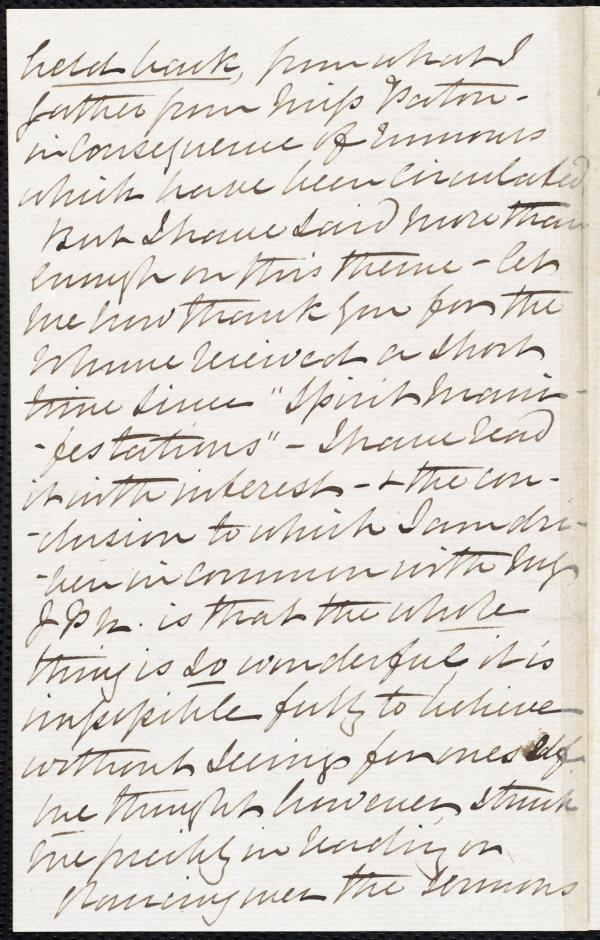 held back, from what I
gather from Miss Paton -
in consequence of rumours
which have been circulated
But I have said more than
enough on this theme - let
me now thank you for the
volume received a short
time since "Spirit Mani-
-festations" - I have read
it with interest - & the con-
-clusion to which I am dri-
-ven in common with My
is that the whole
thing is so wonderful, it is
impossible fully to believe
without seeing for oneself.
one thought however, struck
me in reading or
glancing over the sermons